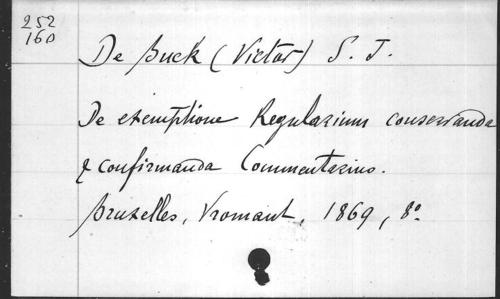 252
160
De Buck (Victor) S. J.
De exemptione Regularium conservanda
& confirmanda Commentarius.
Bruxelles, Vromant, 1869, 8º.